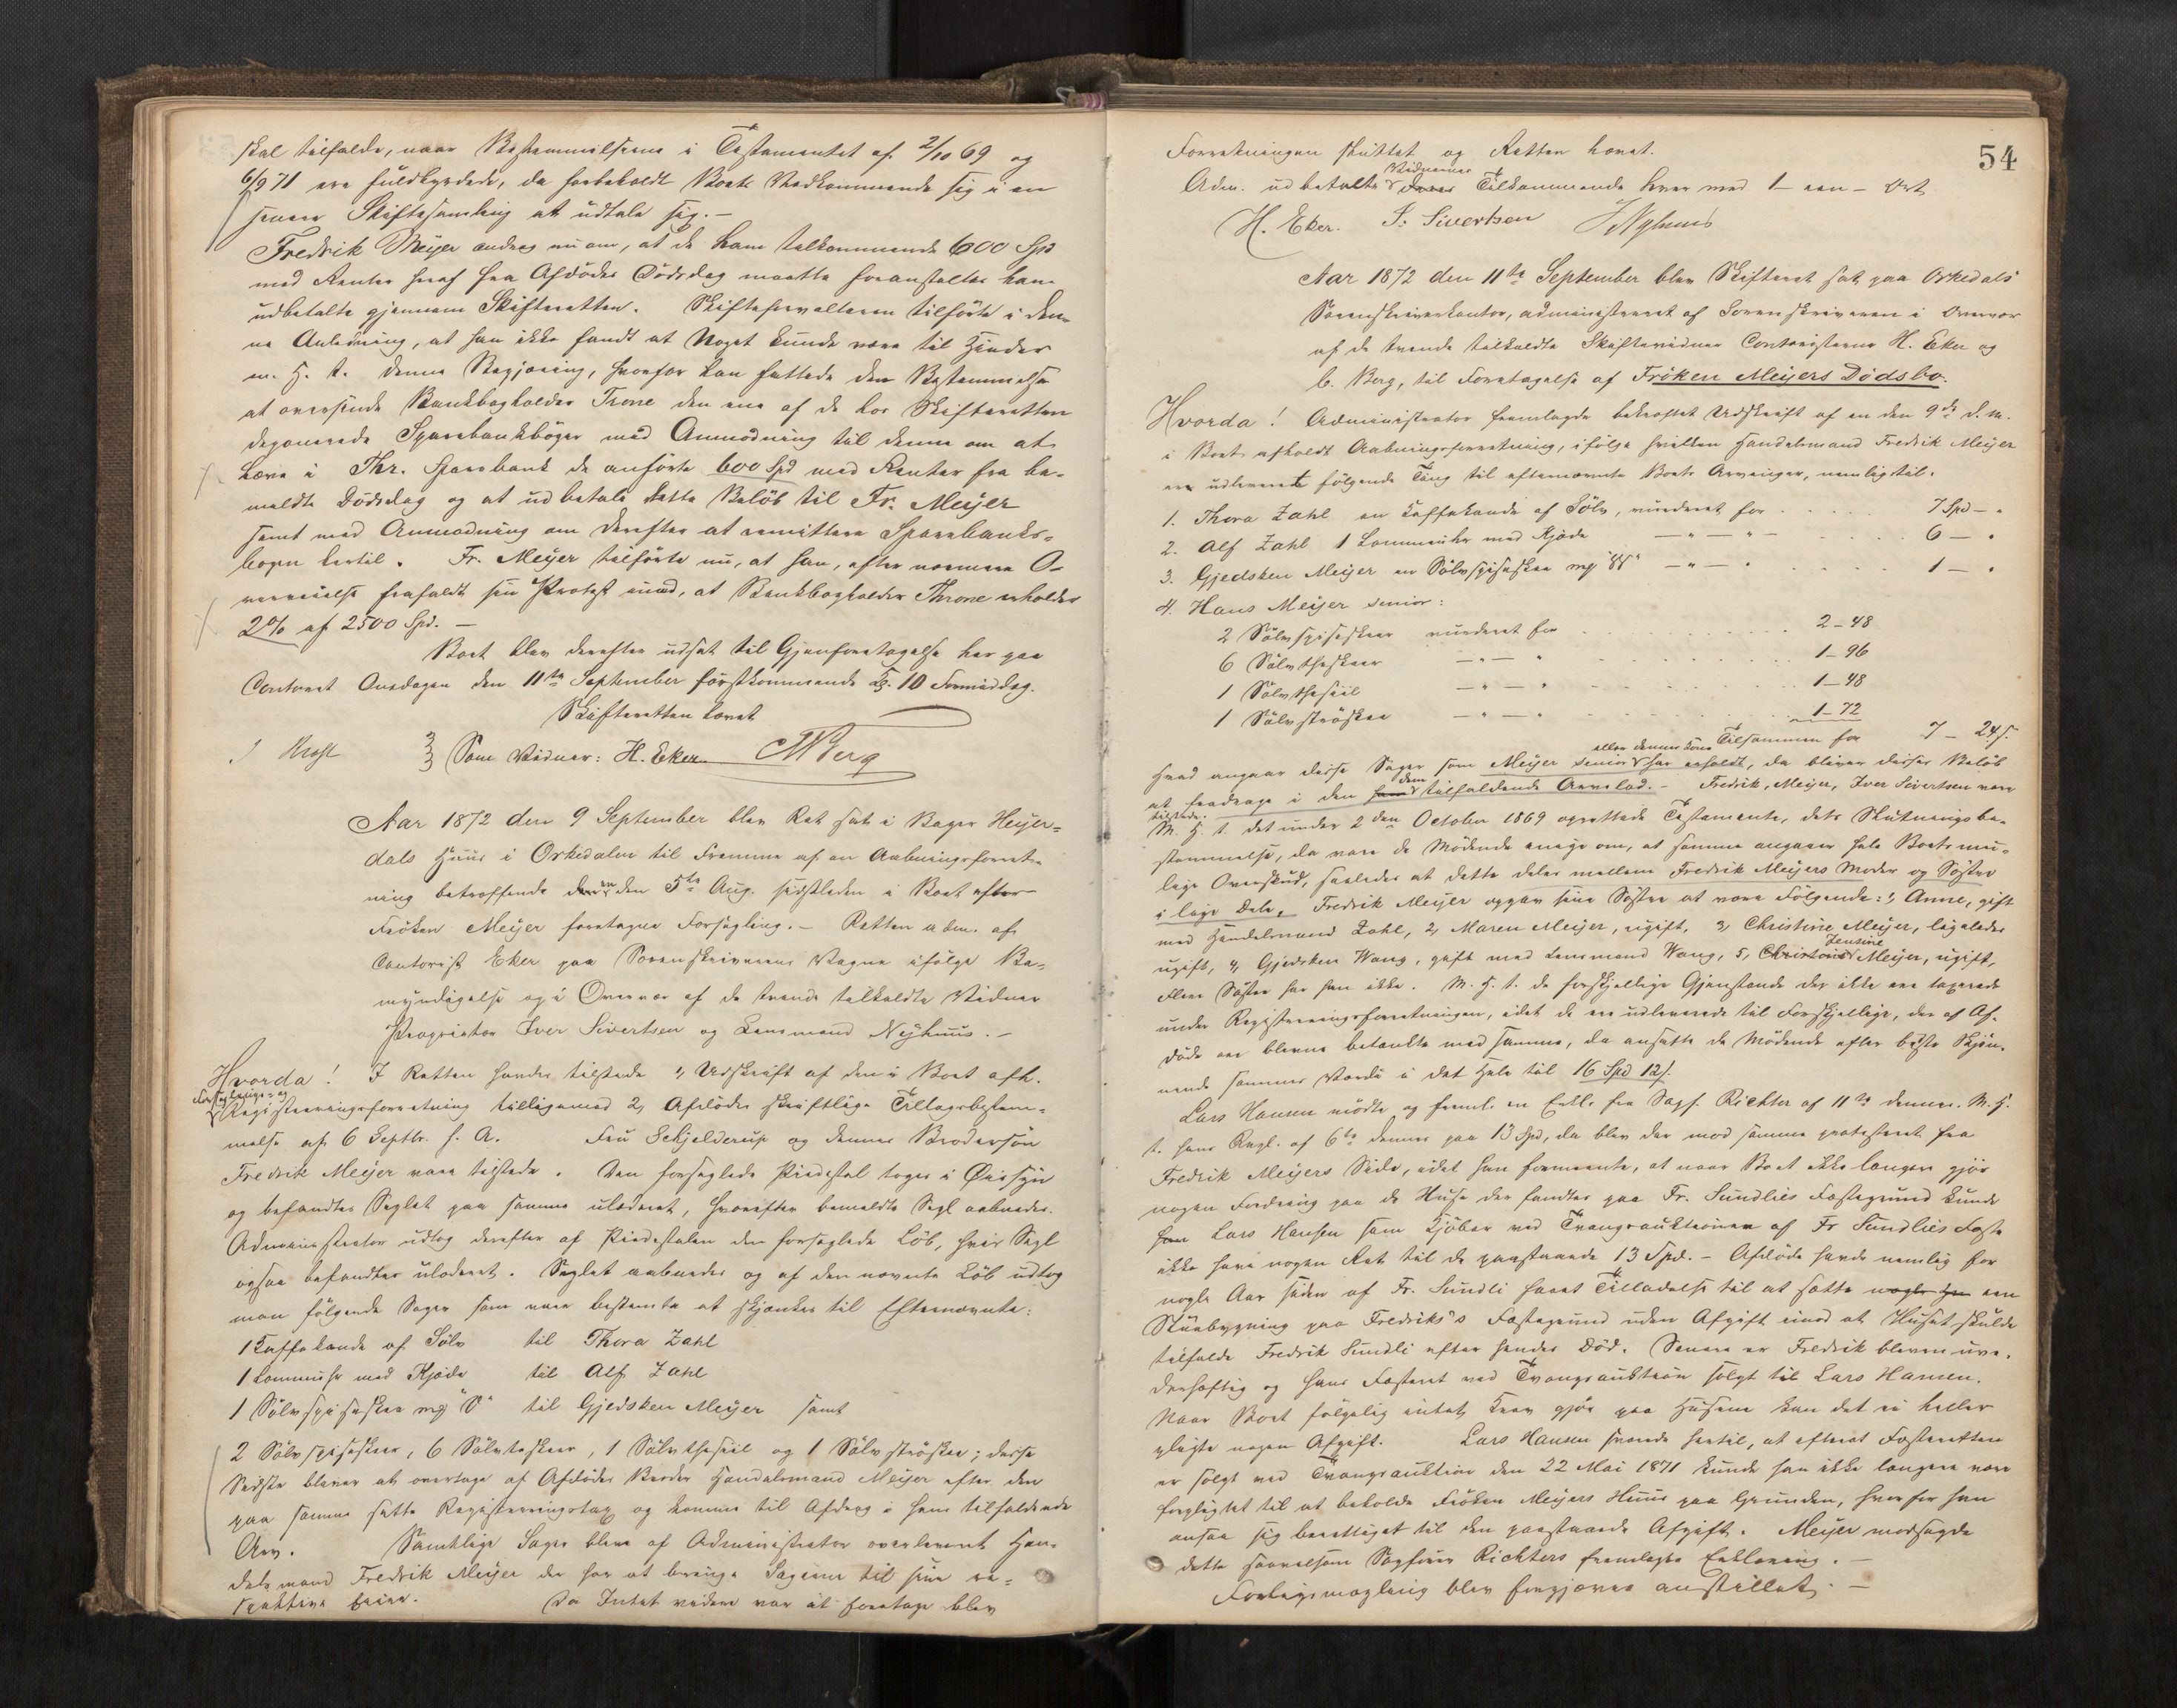 skal tilfalde, naar Bestemmelserne i Testamentet af 2/10 69 og
6/9 71 ere fuldbyrdede, da forbeholdt Boets Vedkommende sig i en
senere Skiftesamling at udtale sig. –
Fredrik Meijer androg nu om, at de ham tilkommende 600 Spd
med Renter heraf fra Afdødes Dødsdag maatte foranstaltes ham
udbetalte gjennem Skifteretten. Skifteforvalteren tilførte i den-
ne Anledning, at han ikke fandt at Noget kunde være til Hinder
m. H. t. denne Begjæring, hvorfor han fattede den Bestemmelse
at oversende Bankbogholder Trone den ene af de hos Skifteretten
deponerede Sparebankbøger med Anmodning til denne om at
hæve i Thr. Sparebank de anførte 600 Spd med Renter fra be-
meldte Dødsdag og at udbetale dette Beløb til Fr. Meijer
samt med Anmodning om derefter at remittere Sparebanks-
bogen hertil. Fr. Meijer tilførte nu, at han, efter nærmere O-
verveielse frafaldt sin Protest imod, at Bankbogholder Throne erholder
2% af 2500 Spd. –
Boet blev derefter udsat til Gjenforetagelse her paa
Contoret Onsdagen den 11te September førstkommende Kl. 10 Formiddag.
Skifteretten hævet
Som Vidner: H. Eker. Berg
Aar 1872 den 9 September blev Ret sat i Bager Heijer-
dals Huus i Orkedalen til Fremme af en Aabningsforret-
ning betræffende den den 5te Aug. sidstleden i Boet efter
Frøken Meijer foretagne Forsegling. – Retten adm. af
Contorist Eker paa Sorenskriverens Vegne ifølge Be-
myndigelse og i Overvær af de tvende tilkaldte Vidner
Proprietær Iver Sivertsen og Lensmand Nyhuus. –
Hvorda! I Retten havdes tilstede 1, Udskrift af den i Boet afh.
Forseglings- og
Registreringsforretning tilligemed 2, Afdødes skriftlige Tillægsbestem-
melse af 6 Septbr. f. A. Fru Schjelderup og dennes Brodersøn
Fredrik Meijer vare tilstede. Den forseglede Piedestal toges i Øiesyn
og befandtes Seglet paa samme ulæderet, hvorefter bemeldte Segl aabnedes.
Administrator udtog derefter af Piedestalen den forseglede Løb, hvis Segl
ogsaa befandtes ulæderet. Seglet aabnedes og af den nævnte Løb udtog
man følgende Sager som vare bestemte at skjænkes til Efternævnte:
1 Kaffekande af Sølv til Thora Zahl
1 Lommeuhr med Kjæde til Alf Zahl
1 Sølvspiseskee til Gjedsken Meijer samt
2 Sølvspiseskeer, 6 Sølvteskeer, 1 Sølvthesiil og 1 Sølvstrøskee; disse
Sidste bliver at overtage af Afdødes Broder Handelsmand Meijer efter den
paa samme satte Registreringstaxt og komme til Afdrag i hans tilfaldende
Arv. Samtlige Sager bleve af Administrator overleveret Han-
delsmand Fredrik Meijer der har at bringe Sagerne til sine re-
spektive Eiere. Da Intet videre var at foretage blev
54
Forretningen sluttet og Retten hævet.
Vidnernes
Adm. udbetalte deres Tilkommende hver med 1 – een – Ort
H. Eker. I. Sivertsen Nyhuus
Aar 1872 den 11te September blev Skifteret sat paa Orkedals
Sorenskriverkontor, administreret af Sorenskriveren i Overvær
af de tvende tilkaldte Skiftevidner Contoristerne H. Eker og
C. Berg, til Foretagelse af Frøken Meijers Dødsbo.
Hvorda! Administrator fremlagde bekræftet Udskrift af en den 9de d. M.
i Boet afholdt Aabningsforretning, ifølge hvilken Handelsmand Fredrik Meijer
er udleveret følgende Ting til efternævnte Boets Arvinger, nemlig til.
1. Thora Zahl en Kaffekande af Sølv, vurderet for . . . 7 Spd – "
2. Alf Zahl 1 Lommeuhr med Kjæde – " – " – . . . 6 – "
3. Gjedsken Meijer en Sølvspiseskee – " – " . . . 1 – "
4. Hans Meijer senior:
2 Sølvspiseskeer vurderet for . . . 2 – 48
6 Sølvtheskeer – " – " . . . 1 – 96
1 Sølvthesiil – " – " . . . 1 – 48
1 Sølvstrøskee – " – " . . . 1 – 72
Tilsammen for 7 – 24 s.
eller dennes Søn
Hvad angaar disse Sager som Meijer senior har erholdt, da bliver disses Beløb
dem
at fradrage i den ham tilfaldende Arvelod. – Fredrik Meijer, Iver Sivertsen vare
tilstede.
M. H. t. det under 2den October 1869 oprettede Testamente, dets Slutningsbe-
stemmelse, da vare de Mødende enige om, at samme angaaer hele Boets mu-
lige Overskud, saaledes at dette deles mellem Fredrik Meijers Moder og Søstre
i lige Dele. Fredrik Meijer opgav sine Søstre at være Følgende: 1, Anne, gift
med Handelsmand Zahl, 2, Maren Meijer, ugift, 3, Christine Meijer, ligeledes
Jensine
ugift, 4, Gjedsken Wang, gift med Lensmand Wang, 5, Meijer, ugift,
flere Søstre har han ikke. M. H. t. de forskjellige Gjenstande der ikke ere taxerede
under Registreringsforretningen, idet de ere udleverede til Forskjellige, der af Af-
døde ere blevne betænkte med samme, da ansatte de Mødende efter bedste Skjøn-
nende sammes Værdi i det Hele til 16 Spd 12 s.
Lars Hansen mødte og freml. en Erkl. fra Sagf. Richter af 11te dennes. M. H.
t. hans Regl. af 6te dennes paa 13 Spd, da blev der mod samme protesteret fra
Fredrik Meijers Side, idet han formeente, at naar Boet ikke længere gjør
nogen Fordring paa de Huse der fandtes paa Fr. Sundlies Fæstegrund kunde
han Lars Hansen som Kjøber ved Tvangsauktionen af Fr Sundlies Fæste
ikke have nogen Ret til de paastaaede 13 Spd. – Afdøde havde nemlig for
nogle Aar siden af Fr. Sundli faaet Tilladelse til at sætte nogle een
Stuebygning paa Fredriks's Fæstegrund uden Afgift imod at Huset skulde
tilfalde Fredrik Sundli efter hendes Død. Senere er Fredrik bleven uve-
derhæftig og hans Fæsteret ved Tvangsauktion solgt til Lars Hansen.
Naar Boet følgelig intet Krav gjør paa Husene kan det ei heller
pligte nogen Afgift. Lars Hansen svarede hertil, at efterat Fæsteretten
er solgt ved Tvangsauktion den 22 Mai 1871 kunde han ikke længere være
forpligtet til at beholde Frøken Meijers Huus paa Grunden, hvorfor han
ansaa sig berettiget til den paastaaede Afgift. Meijer modsagde
dette saavelsom Sagfører Richters fremlagte Erklæring. –
Forligsmægling blev forgjæves anstillet. –